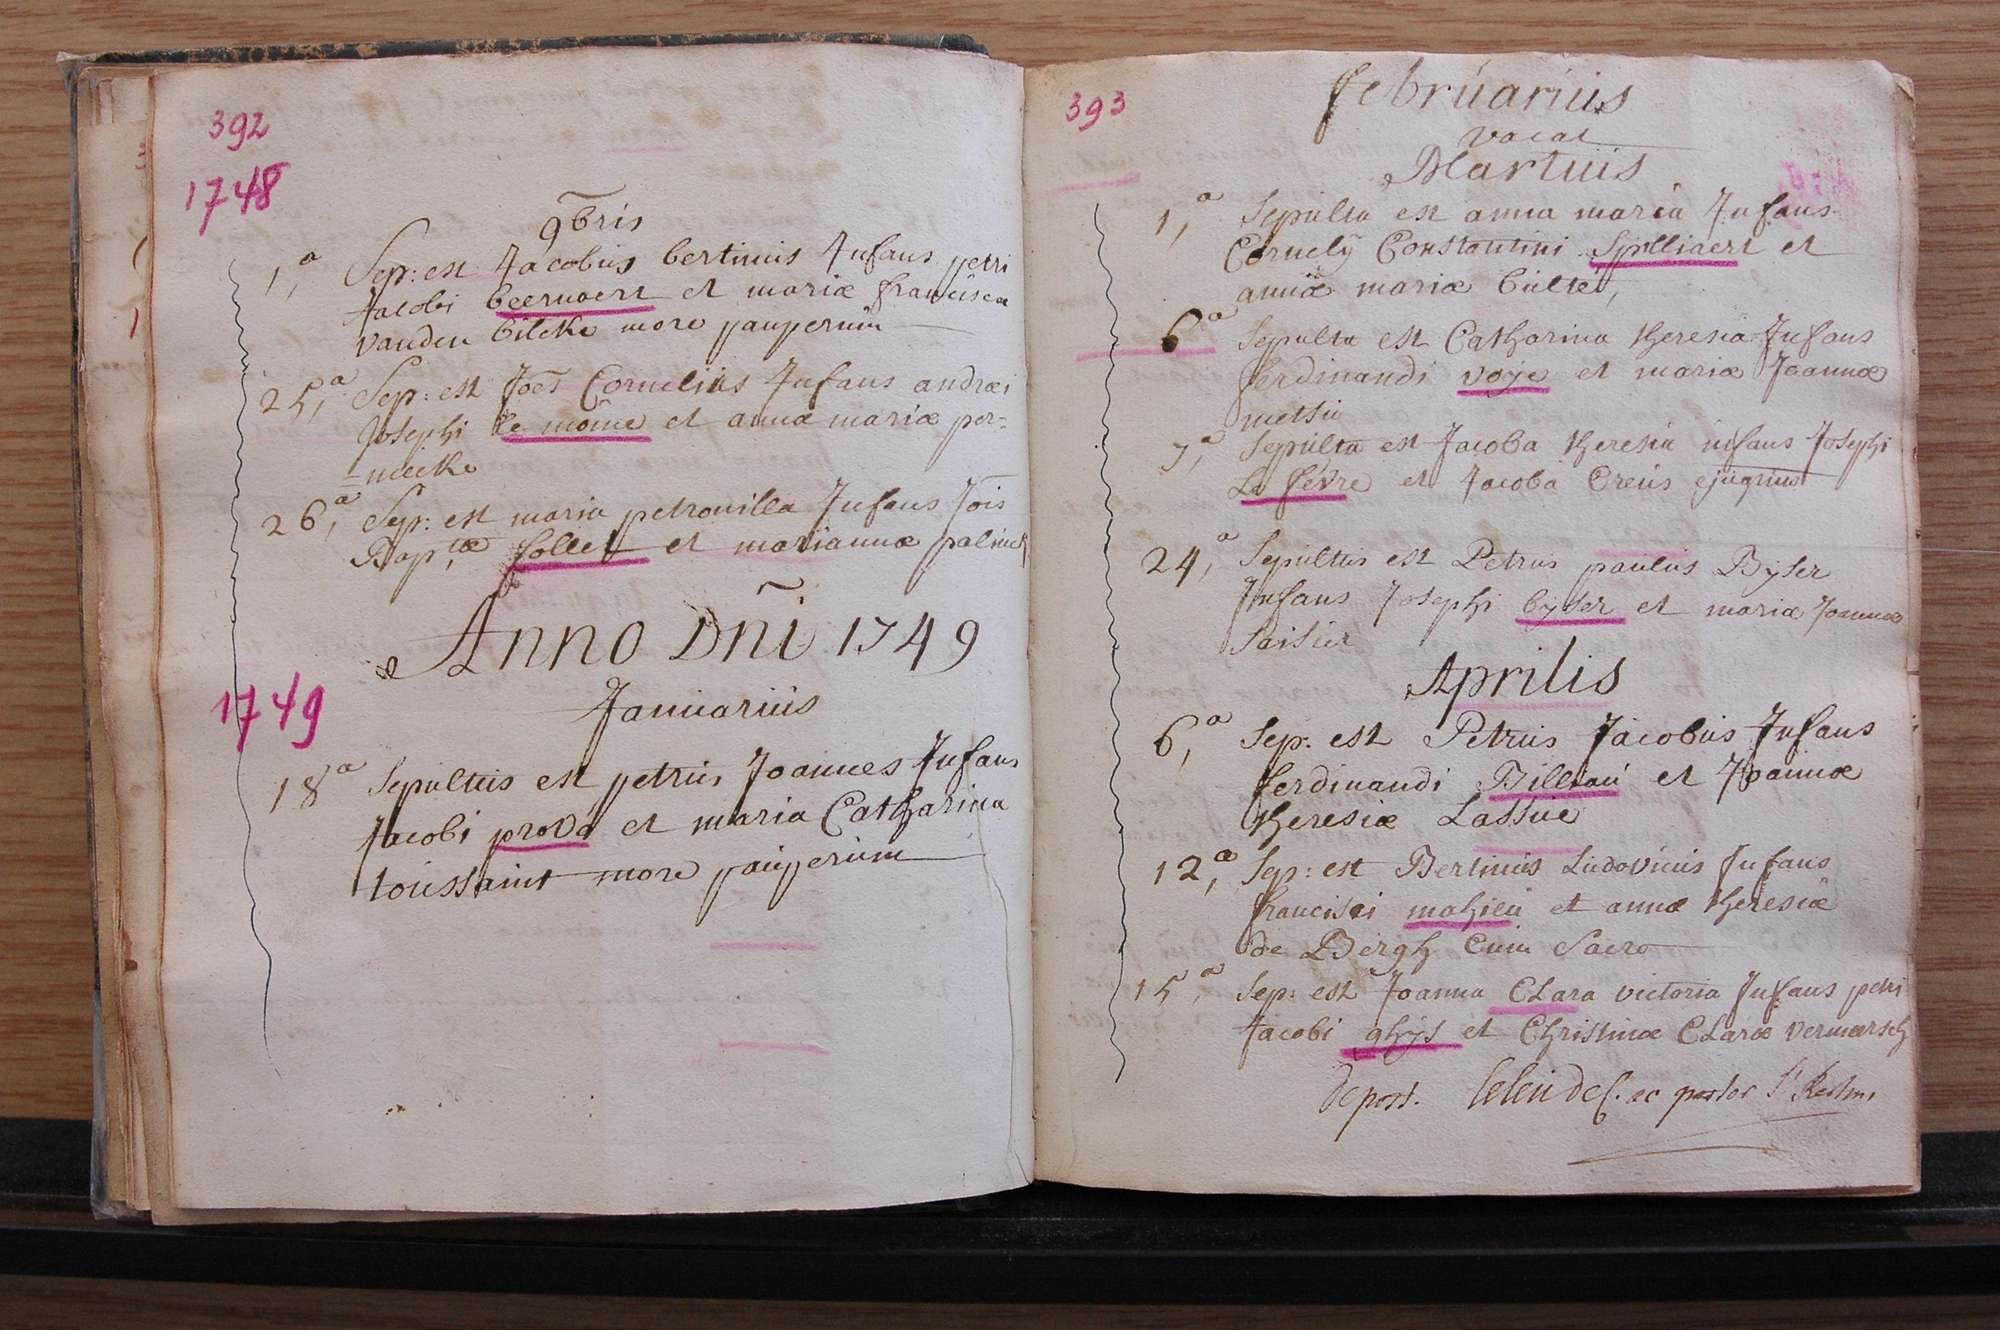 392
1748
9bris
1,a Sep: est Jacobus bertinus Infans petri
Jacobi beernaert et mariæ francisca
vanden bilcke more pauperum
25,a Sep: est Joes Cornelius Infans andræi
Josephi le moine et annæ mariæ per=
=neecke
26,a Sep: est maria petronilla Infans Jois
Bap,tæ follet et mariannæ palinck
Anno Dni 1749
1749
Januarius
18a Sepultus est petrus Joannes Infans
Jacobi provo et maria Catharina
toussaint more pauperum
393
februarius
vacat
Martius
1,a Sepulta est anna maria Infans
Cornelÿ Constantini Spilliaert et
annæ mariæ bulteé,
6a Sepulta est Catharina theresia Infans
ferdinandi voye et mariæ Joannæ
metsu
7,a Sepulta est Jacoba theresia infans Josephi
La févre et Jacoba Creus
24,a Sepultus est Petrus paulus Byser
Infans Josephi byser et mariæ Joannæ
Saisier
Aprilis
6,a Sep: est Petrus Jacobus Infans
ferdinandi Billiau et Joannæ
theresiæ Lassue
12,a Sep: est Bertinus Ludovicus Infans
francisci mahieu et annæ theresiæ
de Bergh Cum Sacro
15,a Sep: est Joanna CLara victoria Infans petri
Jacobi ghÿs et Christinæ CLaræ vermersch
pastor